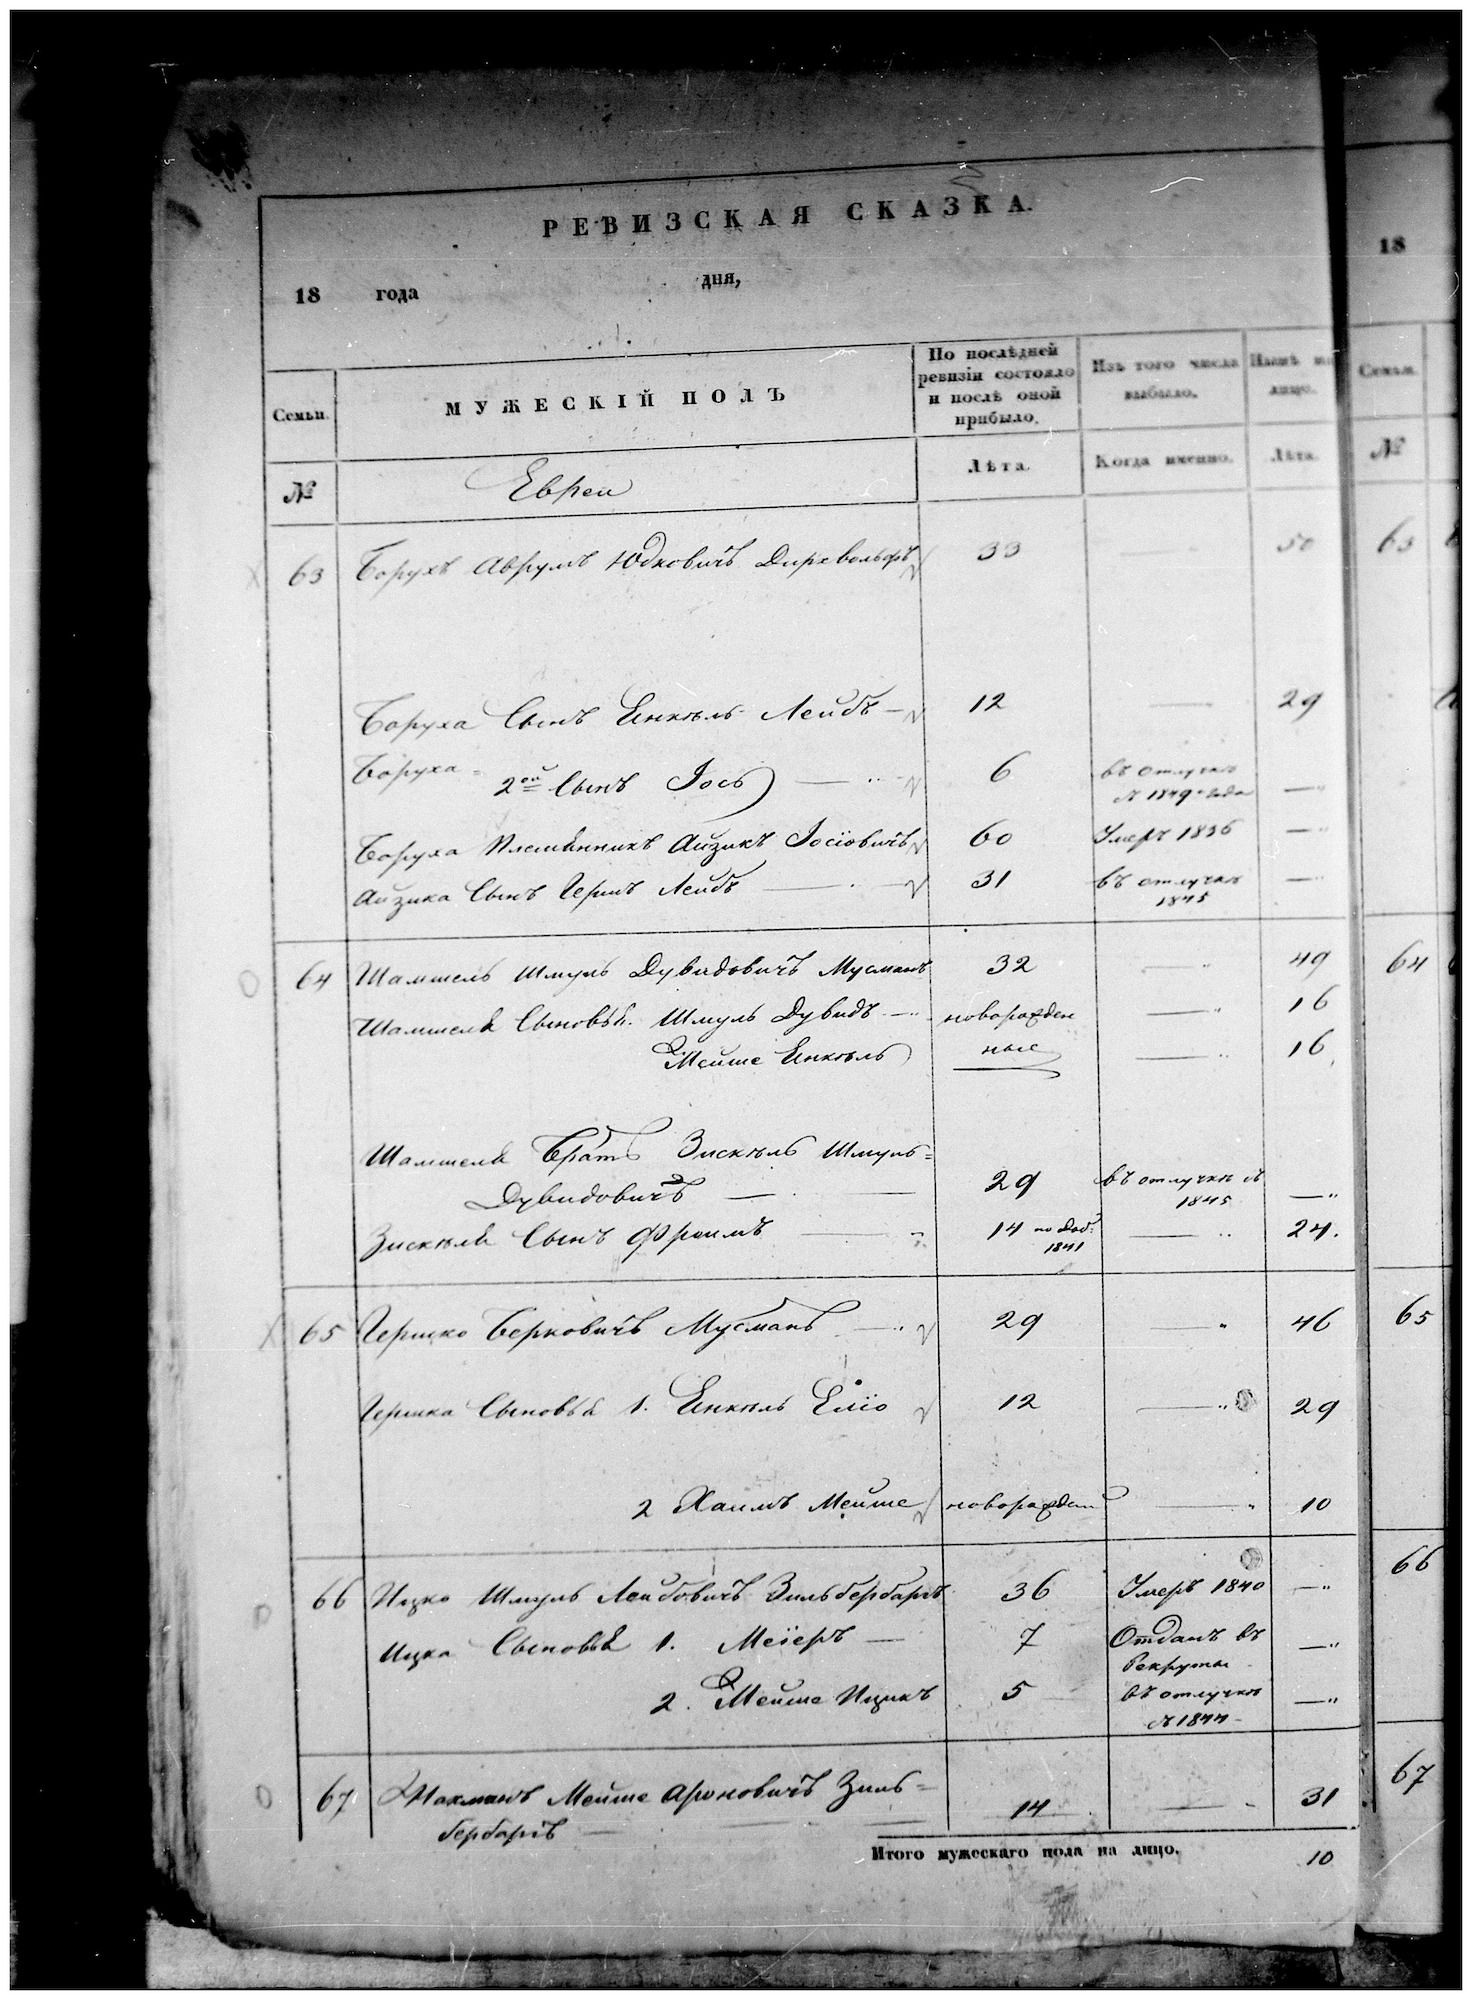 РЕВИЗСКАЯ СКАЗКА.
18 года дня,
18
Семьи.
МУЖЕСКІЙ ПОЛЪ
По послѣдней
ревизіи состояло
и послѣ оной
прибыло.
Изъ того числа
выбыло.
Нынѣ на
лицо.
Семьи.
№
Евреи
Лѣта.
Когда именно.
Лѣта.
№
63 Борухъ Аврумъ Юдковичъ Дирхвольфъ 33 — 50 63
Боруха Сынъ Янкель Лейбъ — 12 — 29
Боруха 2ой Сынъ Іось — 6 въ отлучкѣ —
съ 1849 года
Боруха Племянникъ Айзикъ Іосіовичъ 60 Умеръ 1836 —
Айзика Сынъ Гершъ Лейбъ — 31 въ отлучкѣ —
1845
64 Шамшель Шмуль Дувидовичъ Мусманъ 32 — 49 64
Шамшеля Сыновья. Шмуль Дувидъ — новорожден — 16
Мейше Янкель ные — 16
Шамшеля Братъ Зискель Шмуль=
Дувидовичъ — 29 въ отлучкѣ съ —
1845
Зискеля Сынъ Фроимъ — 14 по доб. — 24.
1841
65 Гершко Берковичъ Мусманъ — 29 — 46 65
Гершка Сыновья 1. Янкель Еліо 12 — 29
2 Хаимъ Мейше новорожден — 10
66 Ицко Шмуль Лейбовичъ Зильбербаргъ 36 Умеръ 1840 — 66
Ицка Сыновья 1. Меіеръ — 7 Отданъ въ —
Рекруты
2. Мейше Ицикъ 5 въ отлучкѣ —
съ 1844
67 Нахманъ Мейше Ароновичъ Зиль= 14 — 31 67
бербаргъ —
Итого мужескаго пола на лицо. 10